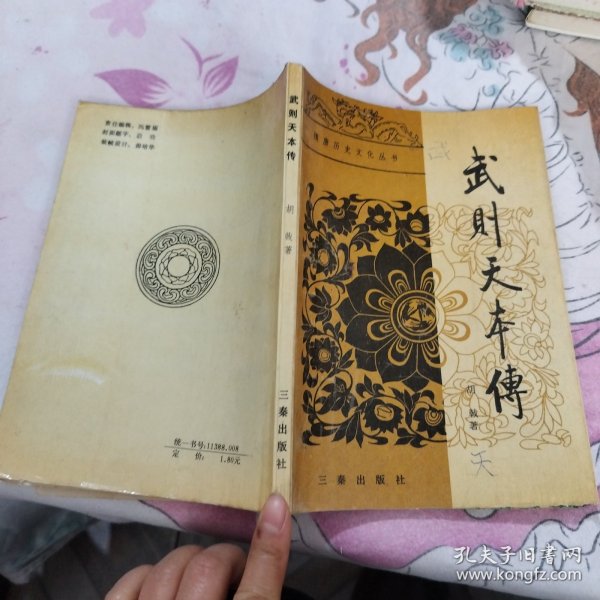 责任编辑：
封面题字：启 功
装帧设计：
统一书号：11388.008
定 价：1.80元
武则天本传
胡 戟 著
三秦出版社
隋唐历史文化丛书
武則天本傳
胡 戟 著
三秦出版社
武
天
孔夫子旧书网
www.kongfz.com